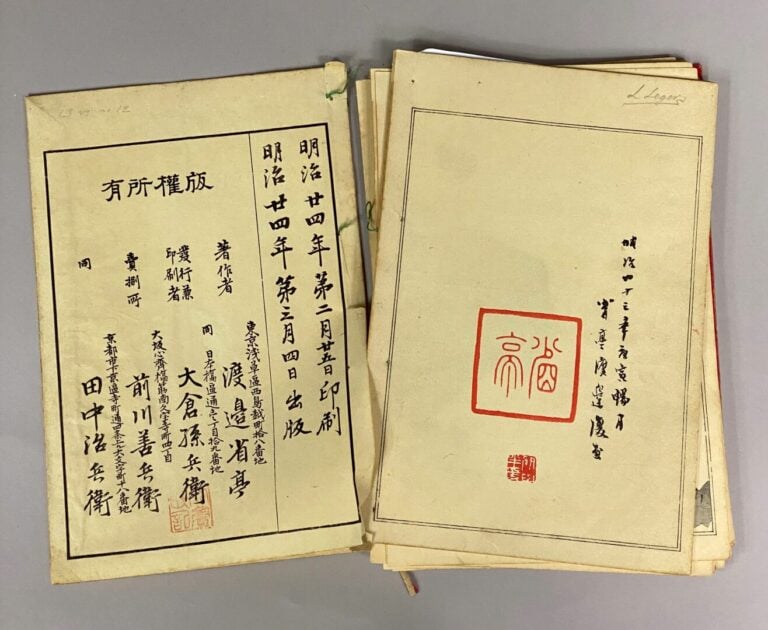 版權所有
明治廿四年第二月廿五日印刷
明治廿四年第三月四日出版
著作者
東京淺草區西鳥越町拾八番地
渡邊省亭
發行兼
印刷者
同 日本橋區通壱丁目拾九番地
大倉孫兵衛
賣捌所
大坂心齋橋筋南久宝寺町四丁目
前川善兵衛
同
京都市下京區寺町通四条上ル大文字町十八番地
田中治兵衛
L Leger
年庚寅暢月
省亭渡邊
省亭